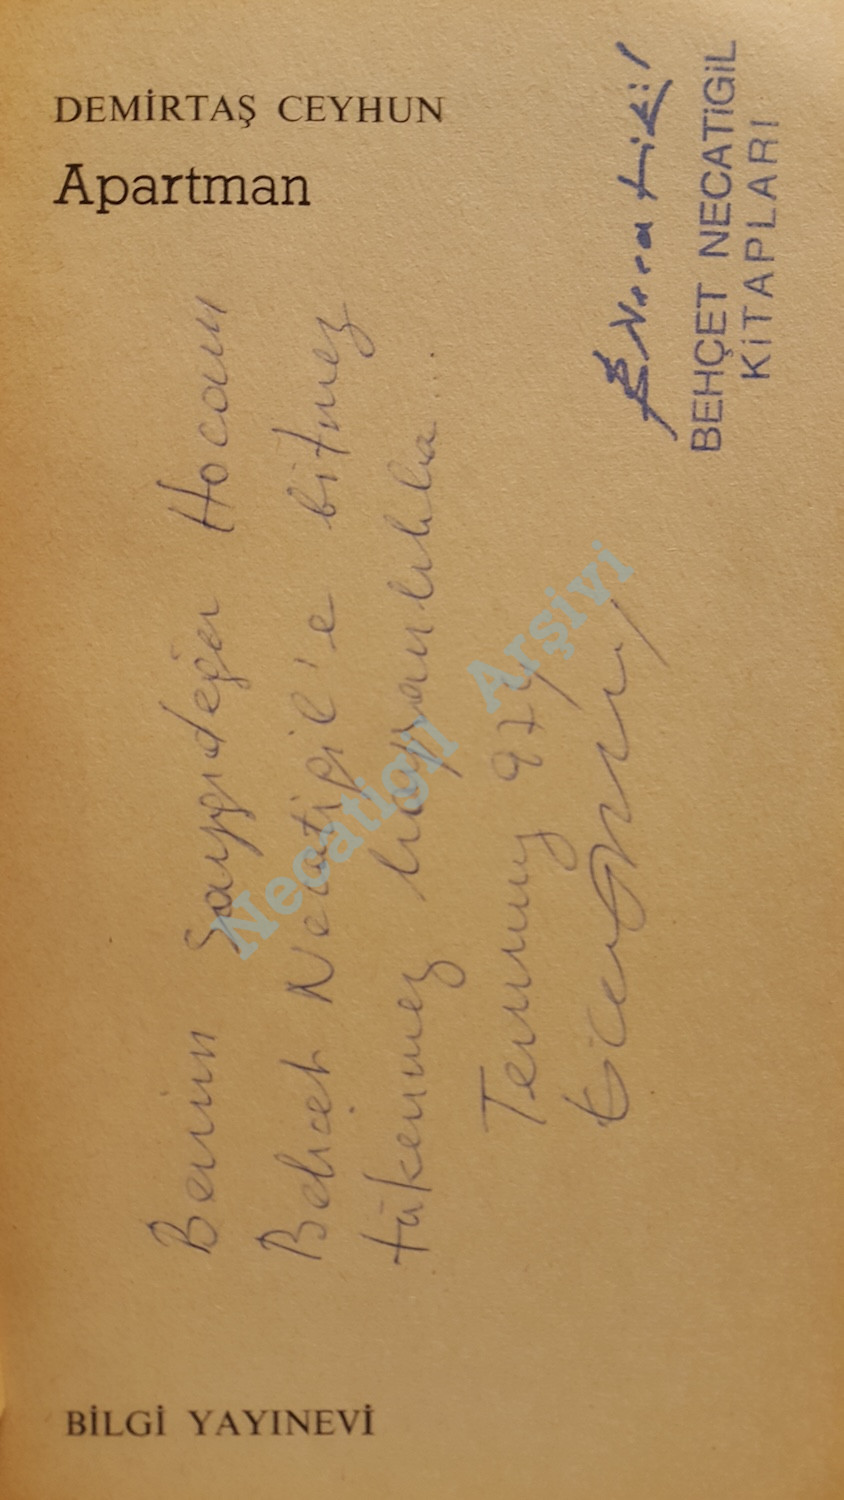 DEMİRTAŞ CEYHUN
Apartman
Benim Saygıdeğer Hocam
Behçet Necatigil'e bitmez
tükenmez hayranlıkla...
Temmuz 974
BNecatigil
BEHÇET NECATİGİL
KİTAPLARI
Necatigil Arşivi
BİLGİ YAYINEVİ